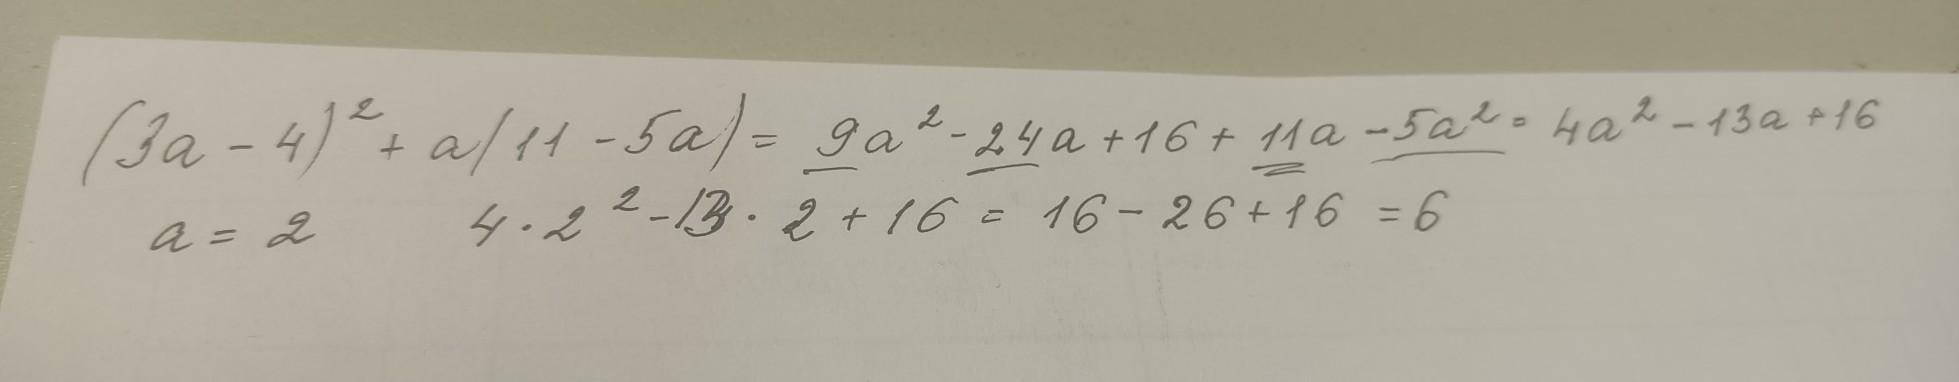 (3a - 4)² + a(11 - 5a) = 9a² - 24a + 16 + 11a - 5a² = 4a² - 13a + 16
a = 2 4 · 2² - 13 · 2 + 16 = 16 - 26 + 16 = 6